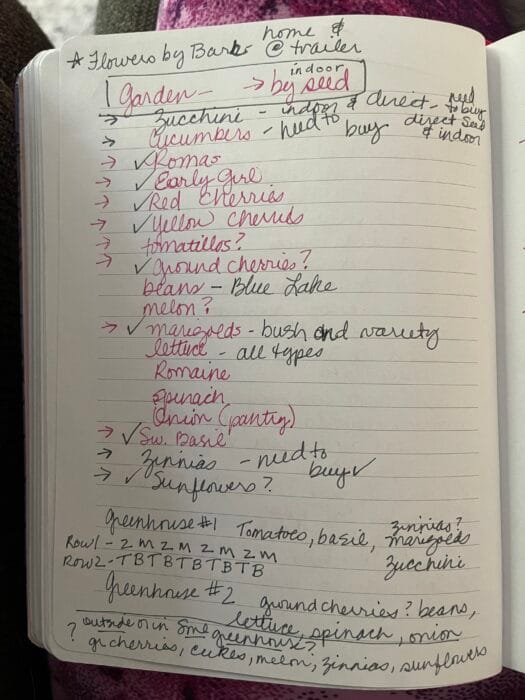 ☆ Flowers by Barb home &
@ trailer
Garden - → by seed indoor
→ Zucchini - indoor & direct - need to buy
→ Cucumbers - need to buy direct seed & indoor
→ ✓ Romas
→ ✓ Early Girl
→ ✓ Red Cherries
→ ✓ Yellow Cherries
→ tomatillos?
→ ✓ ground cherries?
beans - Blue Lake
melon?
→ ✓ marigolds - bush and variety
lettuce - all types
Romaine
Spinach
Onion (pantry)
→ ✓ Sw. Basil
→ Zinnias - need to buy ✓
→ ✓ Sunflowers?
Greenhouse #1 Tomatoes, basil, marigolds zinnias?
Zucchini
Row 1 - Z M Z M Z M Z M
Row 2 - T B T B T B T B T B
Greenhouse #2 ground cherries? beans,
lettuce, spinach, onion
? outside or in some greenhouse?
gr. cherries, cukes, melon, zinnias, sunflowers